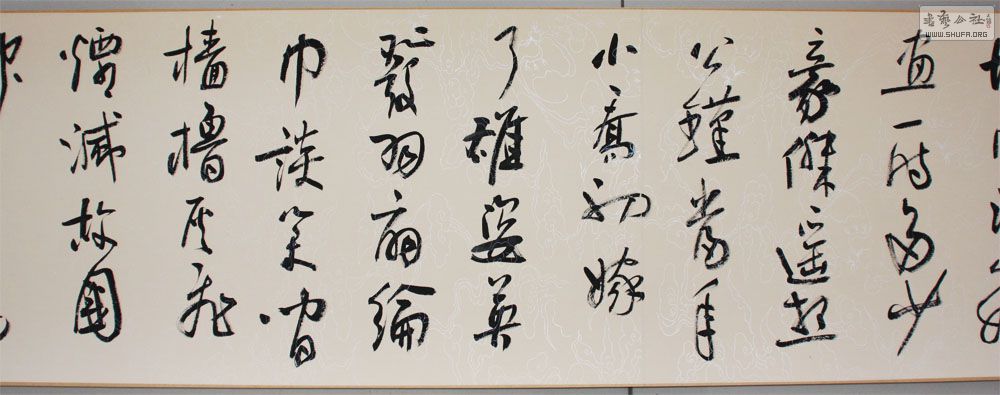 畫一時多少
豪傑遥想
公瑾當年
小喬初嫁
了雄姿英
發羽扇綸
巾談笑間
檣櫓灰飛
煙滅故國
書藝公社
WWW.SHUFA.ORG